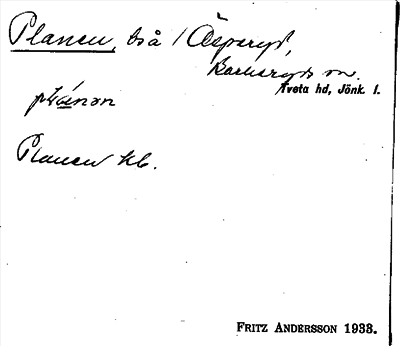 Planen, tså / Äsperyd,
Barkeryds sn.
Tveta hd, Jönk. l.
plánən
Planen kb.
FRITZ ANDERSSON 1933.